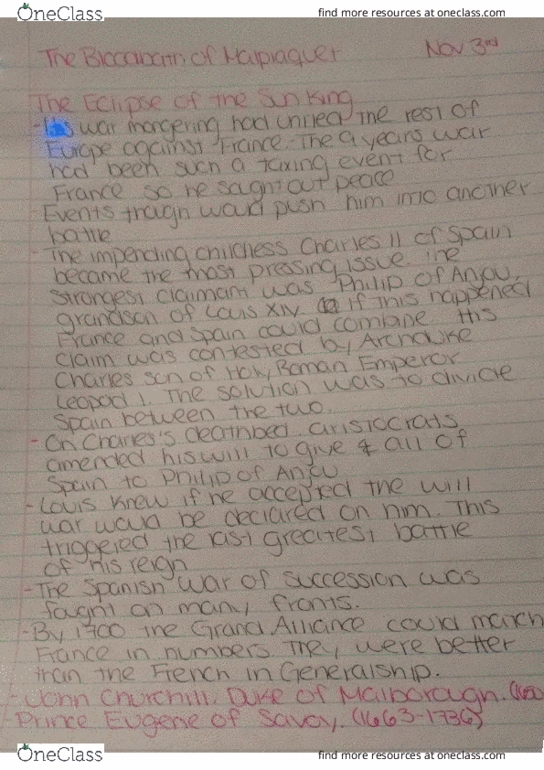 OneClass
find more resources at oneclass.com
The Bloodbath of Malplaquet Nov 3rd
The Eclipse of the Sun King
- His war mongering had united the rest of
Europe against France. The 9 years war
had been such a taxing event for
France so he saught out peace
Events though would push him into another
battle
- The impending childless Charles II of Spain
became the most pressing issue. The
strongest claimant was Philip of Anjou,
grandson of Louis XIV. If this happened
France and Spain could combine. His
claim was contested by Archduke
Charles son of Holy Roman Emperor
Leopold I. The solution was to divide
Spain between the two.
- On Charles's deathbed aristocrats
amended his will to give all of
Spain to Philip of Anjou
- Louis knew if he accepted the will
war would be declared on him. This
triggered the last greatest battle
of his reign
- The Spanish War of succession was
fought on many fronts.
- By 1700 the Grand Alliance could match
France in numbers they were better
than the French in Generalship.
- John Churchill, Duke of Malborough. (1650
- Prince Eugene of Savoy. (1663-1736)
OneClass
find more resources at oneclass.com